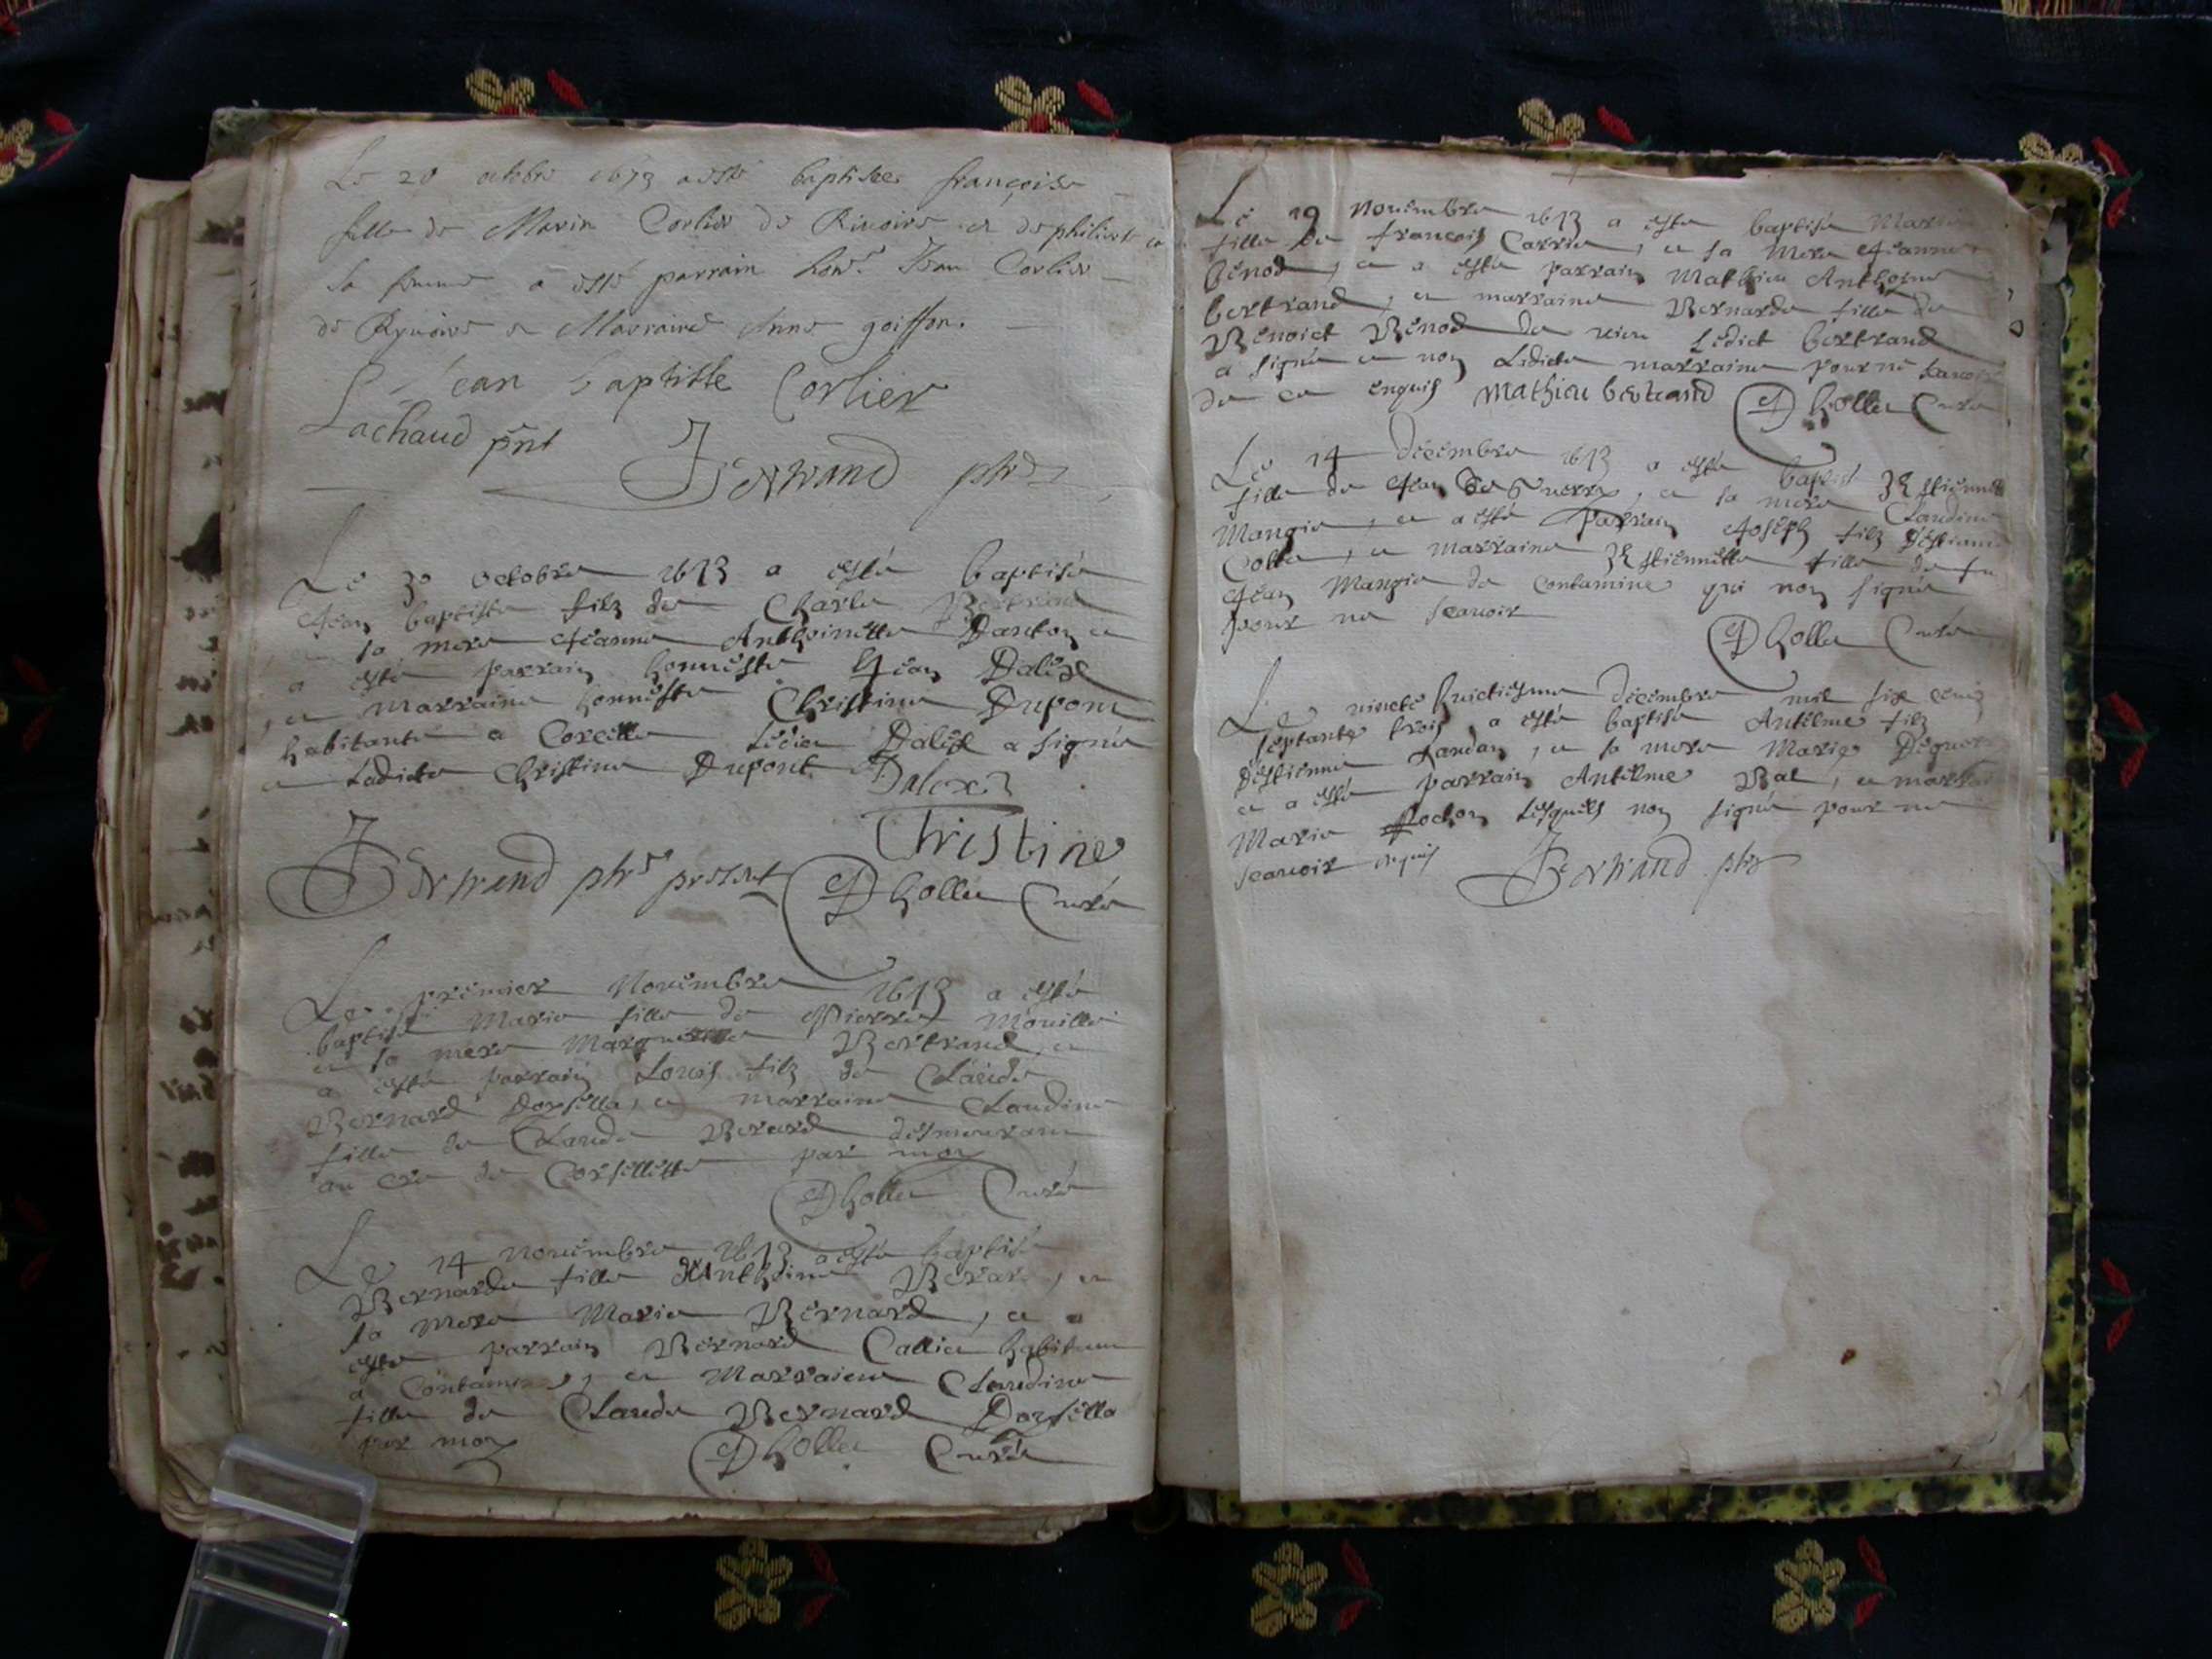 Le 20 octobre 1673 a esté baptisee françoise
fille de Marin Corlier de Rivoire et de philiberte
sa femme a esté parrain hon. Jean Corlier
de Ryvoire et Marraine Anne goiffon.
Jean baptiste Corlier
Lachaud pnt
Bertrand ptre
Le 30 octobre 1673 a esté baptisé
Jean baptiste filz de Charle Bertrand
sa mere Jeanne Anthoinette Danton et
a esté parrain honneste Jean Dalex
et marraine honneste Christine Dupont
habitante a Corcelle Ledict Dalex a signé
et Ladicte Christine Dupont Dalex
Christine
Bertrand ptre present D hollie Curé
Le premier Novembre 1673 a esté
baptisé Marie fille de Pierre Mouille
et sa mere Marguerite Bertrand, et
a esté parrain Louis filz de Claude
Bernard Dorselle, et marraine Claudine
fille de Claude Berard
au de Corsellette par moy
D hollie Curé
Le 14 novembre 1673 a esté baptisé
Bernarde fille Anthoine Berard, et
sa mere Marie Bernard, et a
esté parrain Bernard Callie habitant
a Contamine, et Marraine Claudine
fille de Claude Bernard Dorselle
par moy D hollie Curé
Le 19 novembre 1673 a esté baptisé Marie
fille de françois Carrie, et sa Mere Jeanne
Benod, et a esté parrain Mathieu Anthoine
bertrand, et marraine Bernarde fille de
Benoict Benod de Ledict bertrand
a signé et non Ladicte marraine pour ne scavoir
de ce enquis Mathieu bertrand D hollie Curé
Le 14 Décembre 1673 a esté baptisé Estiennette
fille de Jean De Guerre, et sa mere Claudine
Mangie, et a esté parrain Joseph filz Destienne
Cotte, et Marraine Estiennette fille de fu
Jean Mangie de Contamine qui non signé
pour ne scavoir
D hollie Curé
Le vincte huictiesme décembre mil six cent
septante trois a esté baptisé Antelme filz
Destienne Jandan, et sa mere Marie
et a esté parrain Antelme Bal, et
Marie Pochon Lesquels non signé pour ne
scavoir enquis Bertrand ptre